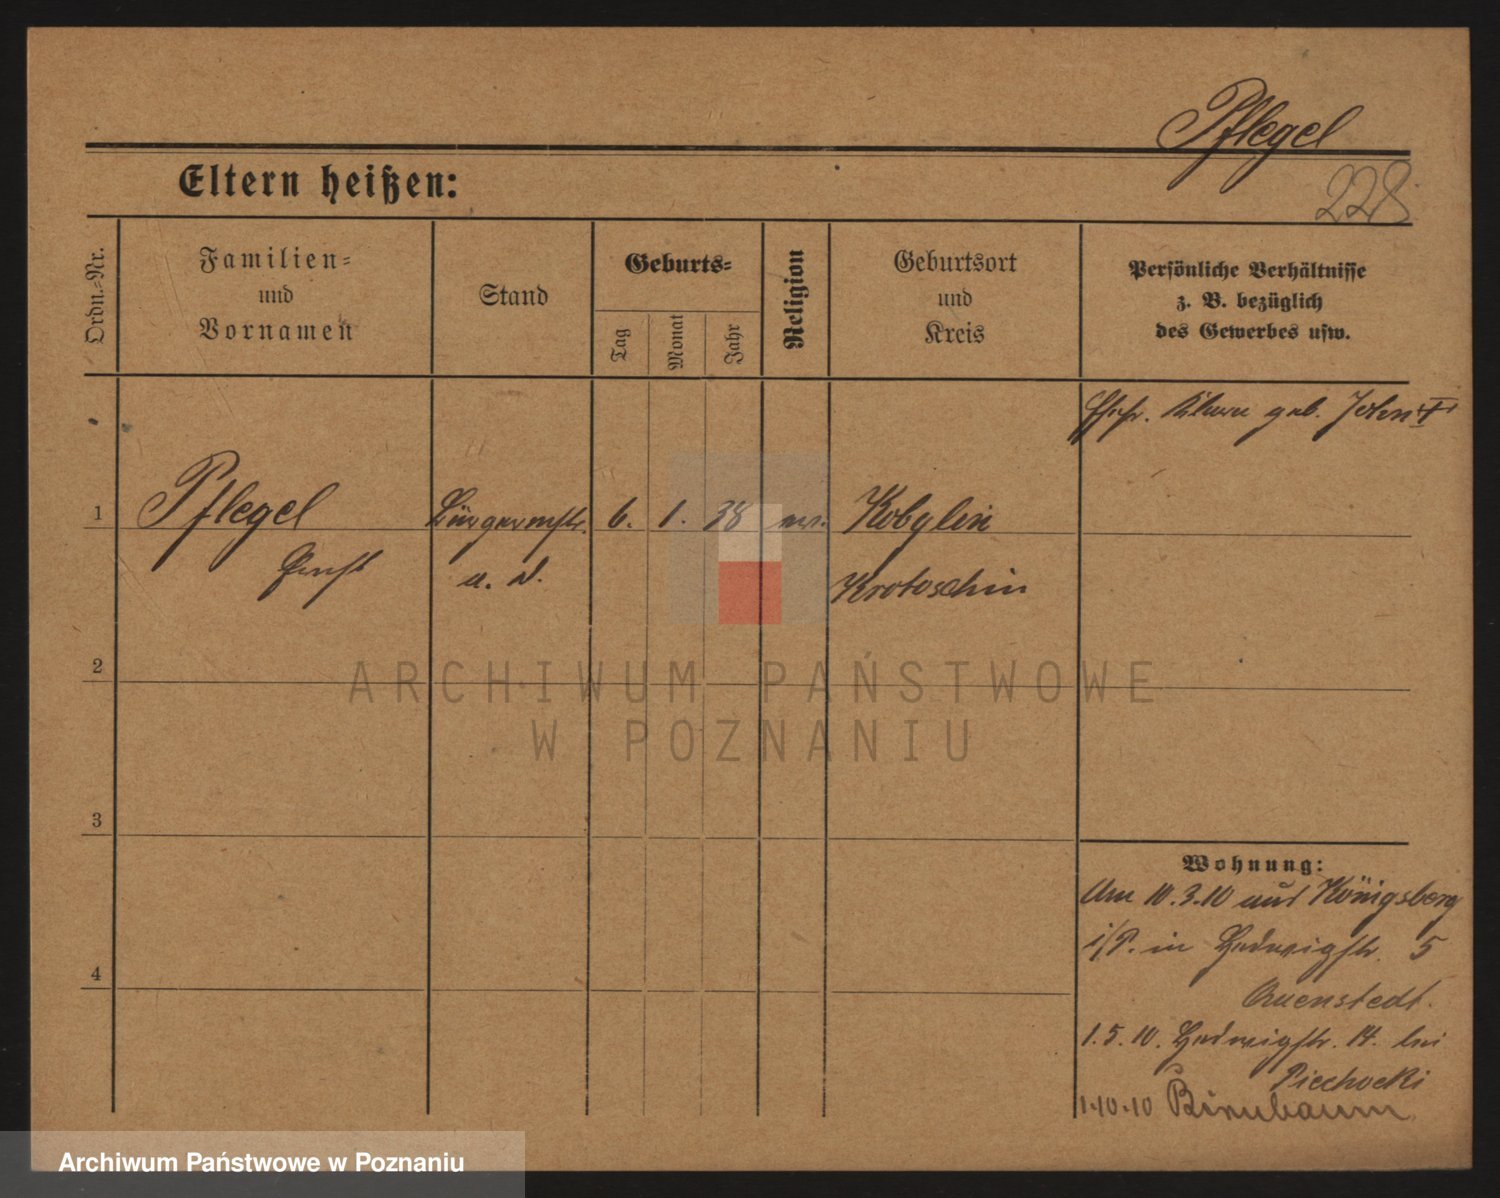 Pflegel
Eltern heißen:
228
Ordn.=Nr.
Familien=
und
Vornamen
Stand
Geburts=
Tag
Monat
Jahr
Religion
Geburtsort
und
Kreis
Persönliche Verhältnisse
z. B. bezüglich
des Gewerbes usw.
Ehefr. geb. John
1
Pflegel
Ernst
Bürgermstr.
a. D.
6.
1.
38
ev.
Kobylin
Krotoschin
2
3
4
Wohnung:
Am 10.3.10 aus Königsberg
i/P. in Hedwigstr. 5
Quenstedt.
1.5.10. Hedwigstr. 14. bei
Piechocki
1.10.10 Birnbaum
ARCHIWUM PAŃSTWOWE
W POZNANIU
Archiwum Państwowe w Poznaniu